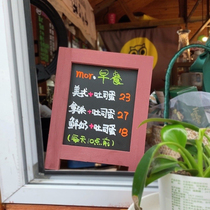 mor. 早餐
美式+吐司蛋 23
拿铁+吐司蛋 27
鲜奶+吐司蛋 18
(每天10点前)